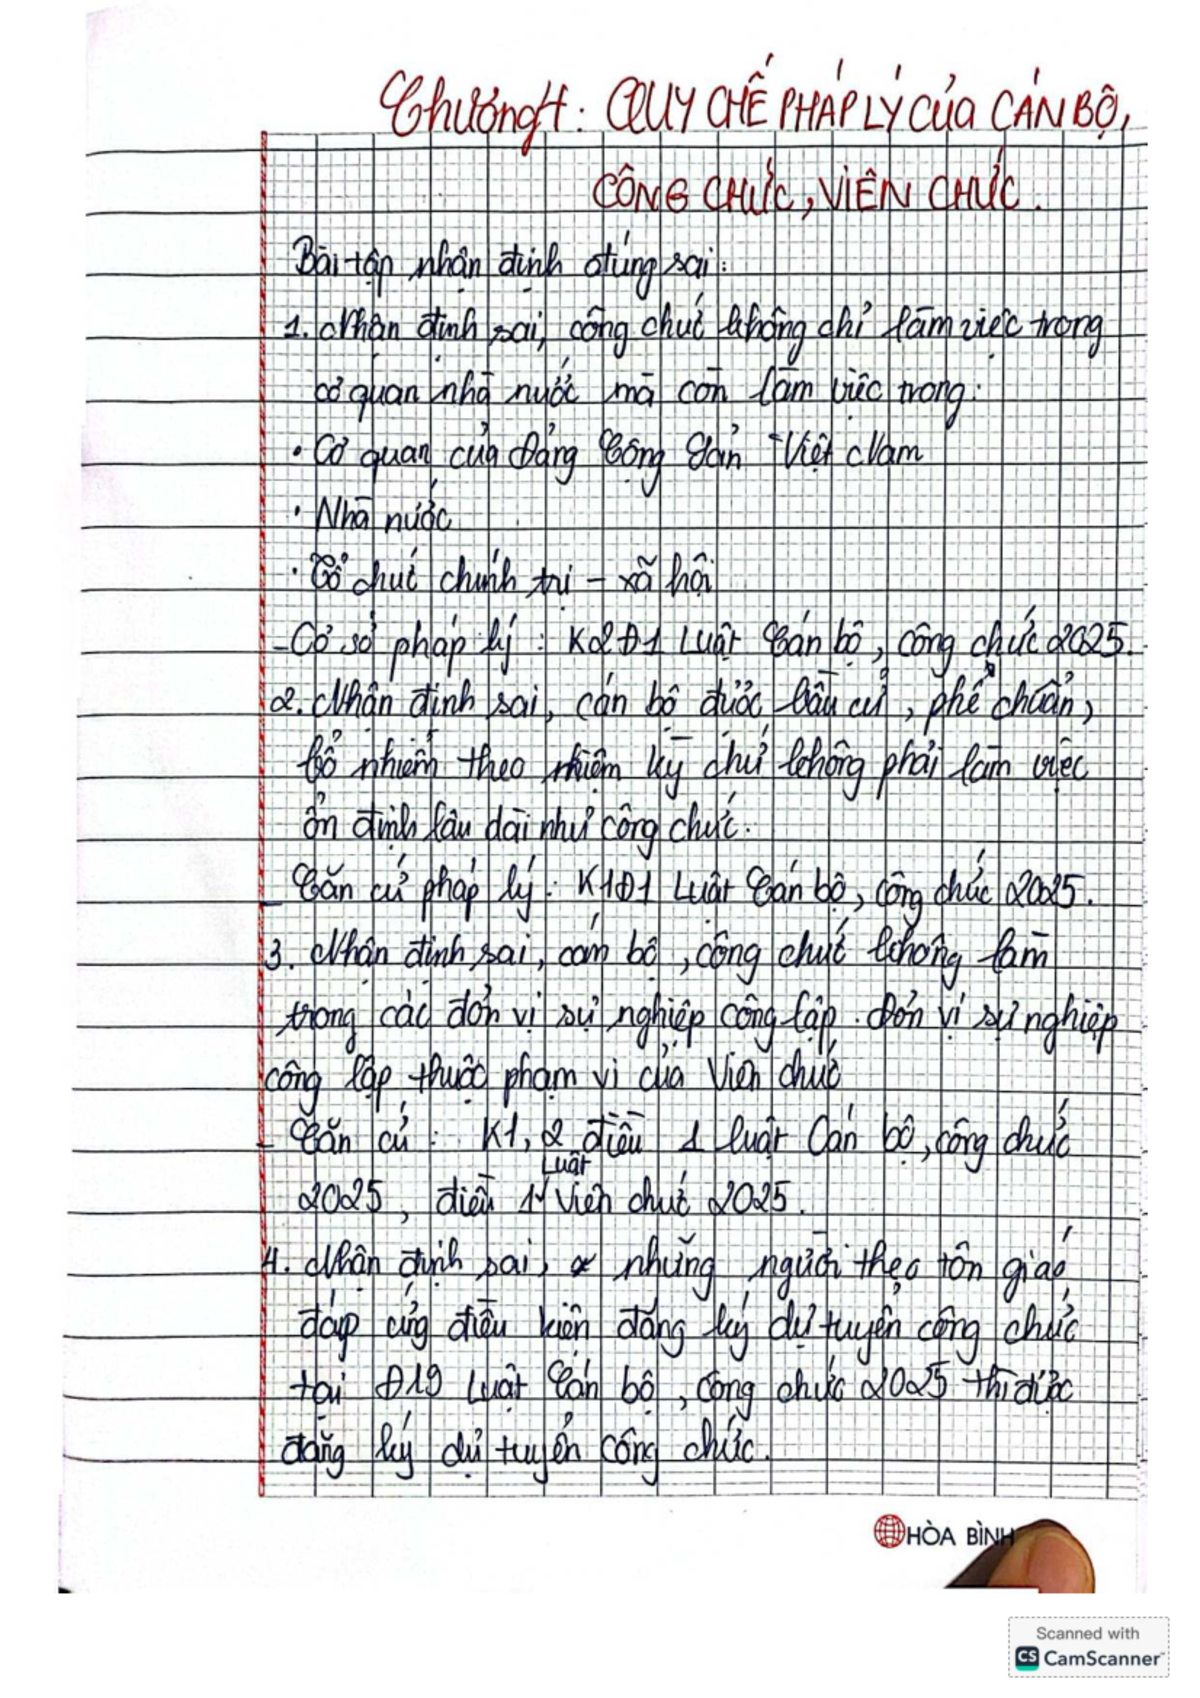 Chương 4: QUY CHẾ PHÁP LÝ CỦA CÁN BỘ,
CÔNG CHỨC, VIÊN CHỨC.
Bài tập nhận định đúng sai:
1. Nhận định sai, công chức không chỉ làm việc trong
cơ quan nhà nước mà còn làm việc trong:
• Cơ quan của Đảng Cộng Sản Việt Nam
• Nhà nước
• Tổ chức chính trị - xã hội
- Cơ sở pháp lý: K2Đ1 Luật Cán bộ, công chức 2025.
2. Nhận định sai, cán bộ được bầu cử, phê chuẩn,
bổ nhiệm theo nhiệm kỳ chứ không phải làm việc
ổn định lâu dài như công chức.
- Căn cứ pháp lý: K1Đ1 Luật Cán bộ, công chức 2025.
3. Nhận định sai, cán bộ, công chức không làm
trong các đơn vị sự nghiệp công lập. Đơn vị sự nghiệp
công lập thuộc phạm vi của Viên chức
- Căn cứ: K1, 2 điều 1 luật Cán bộ, công chức
2025, điều 1 Luật Viên chức 2025.
4. Nhận định sai, những người theo tôn giáo
đáp ứng điều kiện đăng ký dự tuyển công chức
tại Đ19 Luật Cán bộ, công chức 2025 thì được
đăng ký dự tuyển công chức.
HÒA BÌNH
Scanned with
CS CamScanner